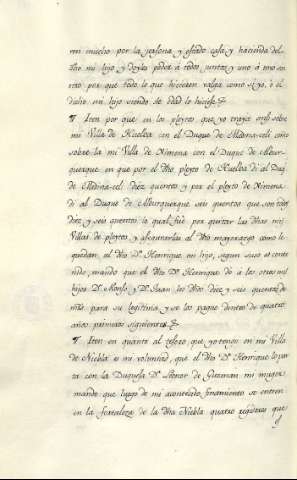 mi mucho por la persona y estado casa, y hacienda del
dho mi hijo y doyles poder á todos juntos y uno á uno en
para que todo lo que hicieren valga como si yo, ó el
dicho mi hijo siendo de edad lo hiciese
Iten por que en los pleytos que yo traya sobre
mi Villa de Huelba con el Duque de Medinaceli ó en
sobre la mi Villa de Ximena con el Duque de Albur-
querque en que por el dho pleyto de Huelba dí al Duq.
de Medina-celi diez quentos y por el pleyto de Ximena
dí al Duque de Alburquerque seis quentos que son todos
diez y seis quentos lo qual fué por quitar las dhas mis
Villas de pleytos, y asegurarlas al dho mayorazgo como le
quedan, el dho Dn Henrrique mi hijo, segun suso es conte
nido, mando que el dho Dn Henrrique dé á los otros mis
hijos Dn Alonso, y Dn Juan los dhos diez y seis quentos de
mrs para su legitima y se los pague dentro de quatro
años primeros siguientes.
Iten en quanto al tesoro que yo tengo en mi Villa
de Niebla é mi voluntad, que el dho Dn Henrrique lo par
ta con la Duquesa Dª Leonor de Guzman mi muger
mando que luego de mi acontecido finamiento se entren
en la fortaleza de la dha Niebla quatro regidores que